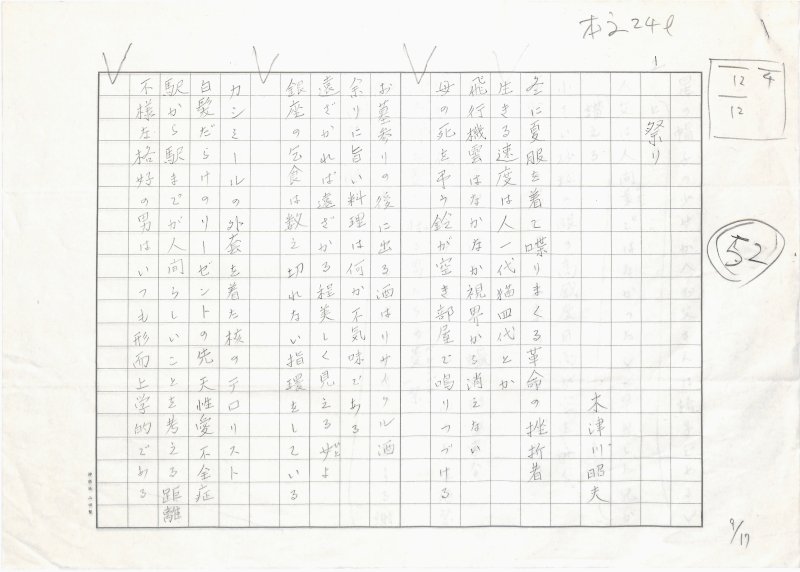 本文24l
12 4
12
52
祭り
木津川昭夫
冬に夏服を着て喋りまくる革命の挫折者
生きる速度は人一代猫四代とか
飛行機雲はなかなか視界から消えない
母の死を弔う鈴が空き部屋で鳴りつづける
お墓参りの後に出る酒はリサイクル酒
余りに旨い料理は何か不気味である
遠ざかれば遠ざかる程美しく見える姫よ
銀座の乞食は数え切れない指環をしている
カシミールの外套を着た核のテロリスト
白髪だらけのリーゼントの先天性愛不全症
駅から駅までが人間らしいことを考える距離
不様な格好の男はいつも形而上学的である
9/17